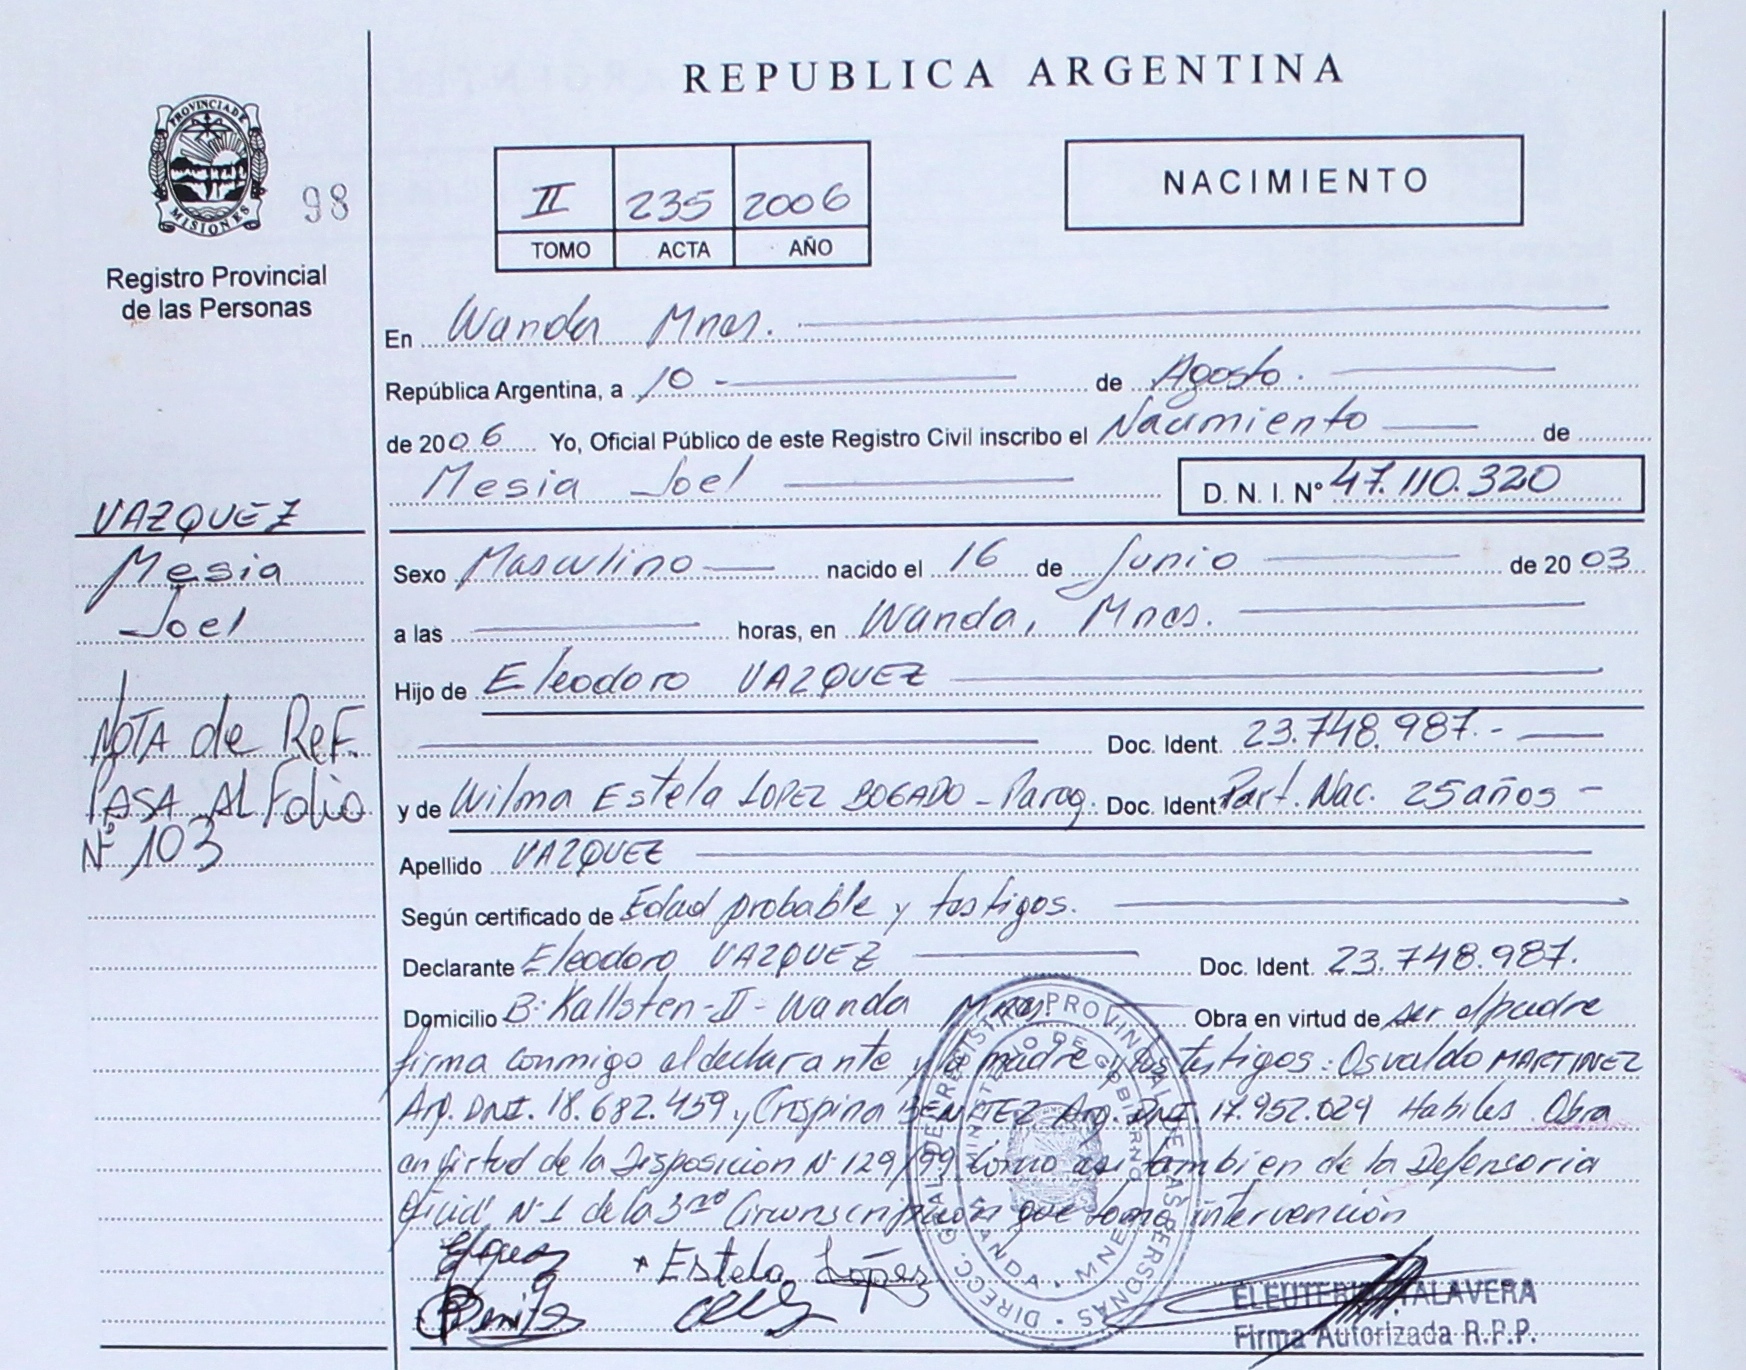 REPUBLICA ARGENTINA
PROVINCIA DE
MISIONES
98
Registro Provincial
de las Personas
II 235 2006
TOMO ACTA AÑO
NACIMIENTO
En Wanda Mnes.
República Argentina, a 10 - de Agosto.
de 2006 Yo, Oficial Público de este Registro Civil inscribo el Nacimiento de
Mesia Joel D. N. I. N° 47.110.320
VAZQUEZ
Mesia
Joel
NOTA de ReF.
PASA AL Folio
N° 103
Sexo Masculino nacido el 16 de Junio de 2003
a las horas, en Wanda, Mnes.
Hijo de Eleodoro VAZQUEZ
Doc. Ident. 23.748.987.-
y de Wilma Estela LOPEZ BOGADO - Parag. Doc. Ident Part. Nac. 25 años -
Apellido VAZQUEZ
Según certificado de Edad probable y testigos.
Declarante Eleodoro VAZQUEZ Doc. Ident. 23.748.987.
Domicilio B: Kallsten - II - Wanda Mnes. Obra en virtud de ser el padre
firma conmigo el declarante y la madre y los testigos: Osvaldo MARTINEZ
Arg. DNI. 18.682.459 y Crispina BENITEZ Arg. DNI 17.952.029 Habiles Obra
en virtud de la Disposicion N° 129/99 como asi tambien de la Defensoria
Oficial N° 1 de la 3ra Circunscripcion que tomo intervención
Estela López
DIRECC. GRAL. DE REGISTRO PROVINCIAL DE LAS PERSONAS
MINISTERIO DE GOBIERNO
WANDA - MNES
ELEUTERIO TALAVERA
Firma Autorizada R.P.P.